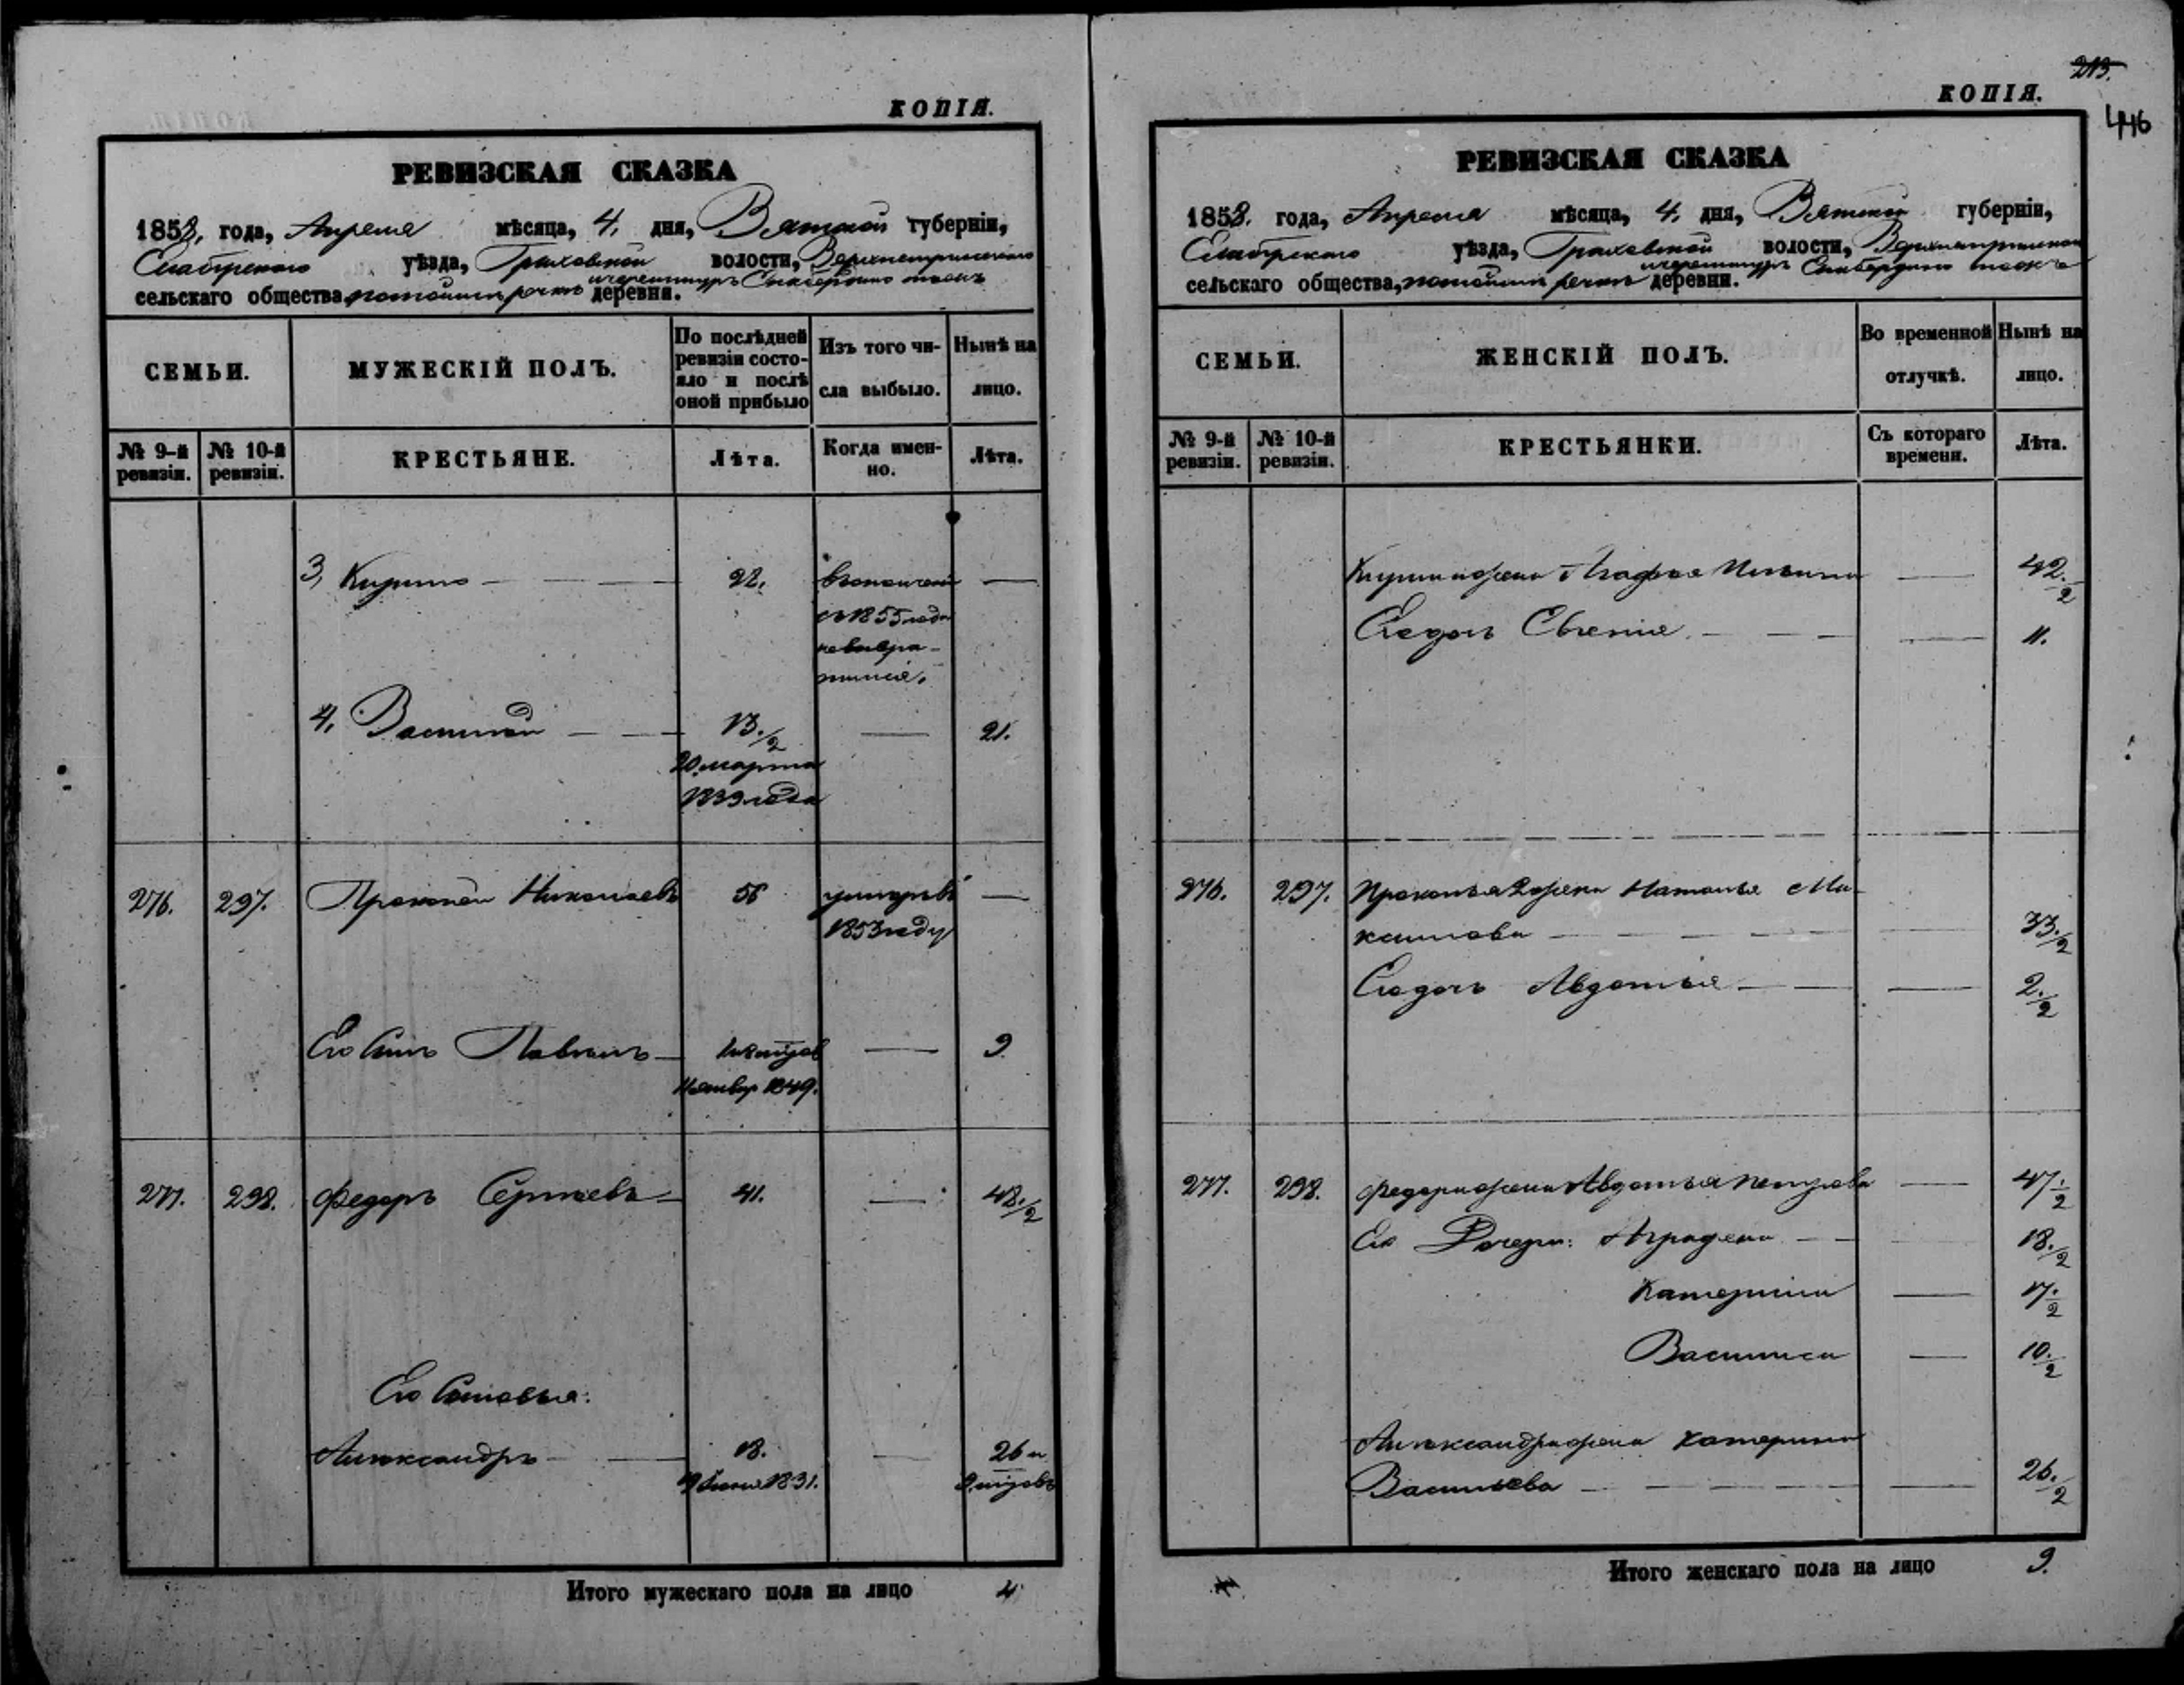 КОПІЯ.
РЕВИЗСКАЯ СКАЗКА
1858, года, Апреля мѣсяца, 4, дня, Вятской губерніи,
Елабугскаго уѣзда, Граховской волости,
сельскаго общества, деревни.
СЕМЬИ.
МУЖЕСКІЙ ПОЛЪ.
По послѣдней ревизіи состояло и послѣ оной прибыло
Изъ того числа выбыло.
Нынѣ на лицо.
№ 9-й ревизіи.
№ 10-й ревизіи.
КРЕСТЬЯНЕ.
Лѣта.
Когда именно.
Лѣта.
3, Кирило — — 22. —
съ 1855 года
4, Василей — — 13./2 — 21.
20 марта
1839 года
276. 297. Прокопей Николаевъ 56 умеръ въ —
1853 году
Его Сынъ Павелъ — — 9
1849.
277. 298. Федоръ Сергѣевъ — 41. — 48./2
Его Сыновья:
Александръ — — 18. — 26 и
1831.
Итого мужескаго пола на лицо 4
213.
КОПІЯ.
446
РЕВИЗСКАЯ СКАЗКА
1858. года, Апреля мѣсяца, 4, дня, Вятской губерніи,
Елабугскаго уѣзда, Граховской волости,
сельскаго общества, деревни.
СЕМЬИ.
ЖЕНСКІЙ ПОЛЪ.
Во временной отлучкѣ.
Нынѣ на лицо.
№ 9-й ревизіи.
№ 10-й ревизіи.
КРЕСТЬЯНКИ.
Съ котораго времени.
Лѣта.
Кирила жена Агафья — 42./2
Его дочь Евгенія. — — — 11.
276. 297. Прокопья 2 жена Наталья Ма-
ксимова — — — — 33./2
Его дочь Авдотья — — — 2./2
277. 298. Федора жена Авдотья Петрова — 47./2
Его Дочери: Аграфена — — 18./2
Катерина — 17./2
Василиса — 10./2
Александра жена Катерина
Васильева — — — — — 26./2
Итого женскаго пола на лицо 9.